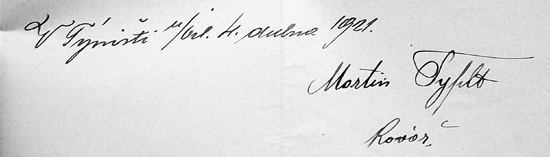 V Týništi n/Orl. 4. dubna 1921.
Martin
Kovář.